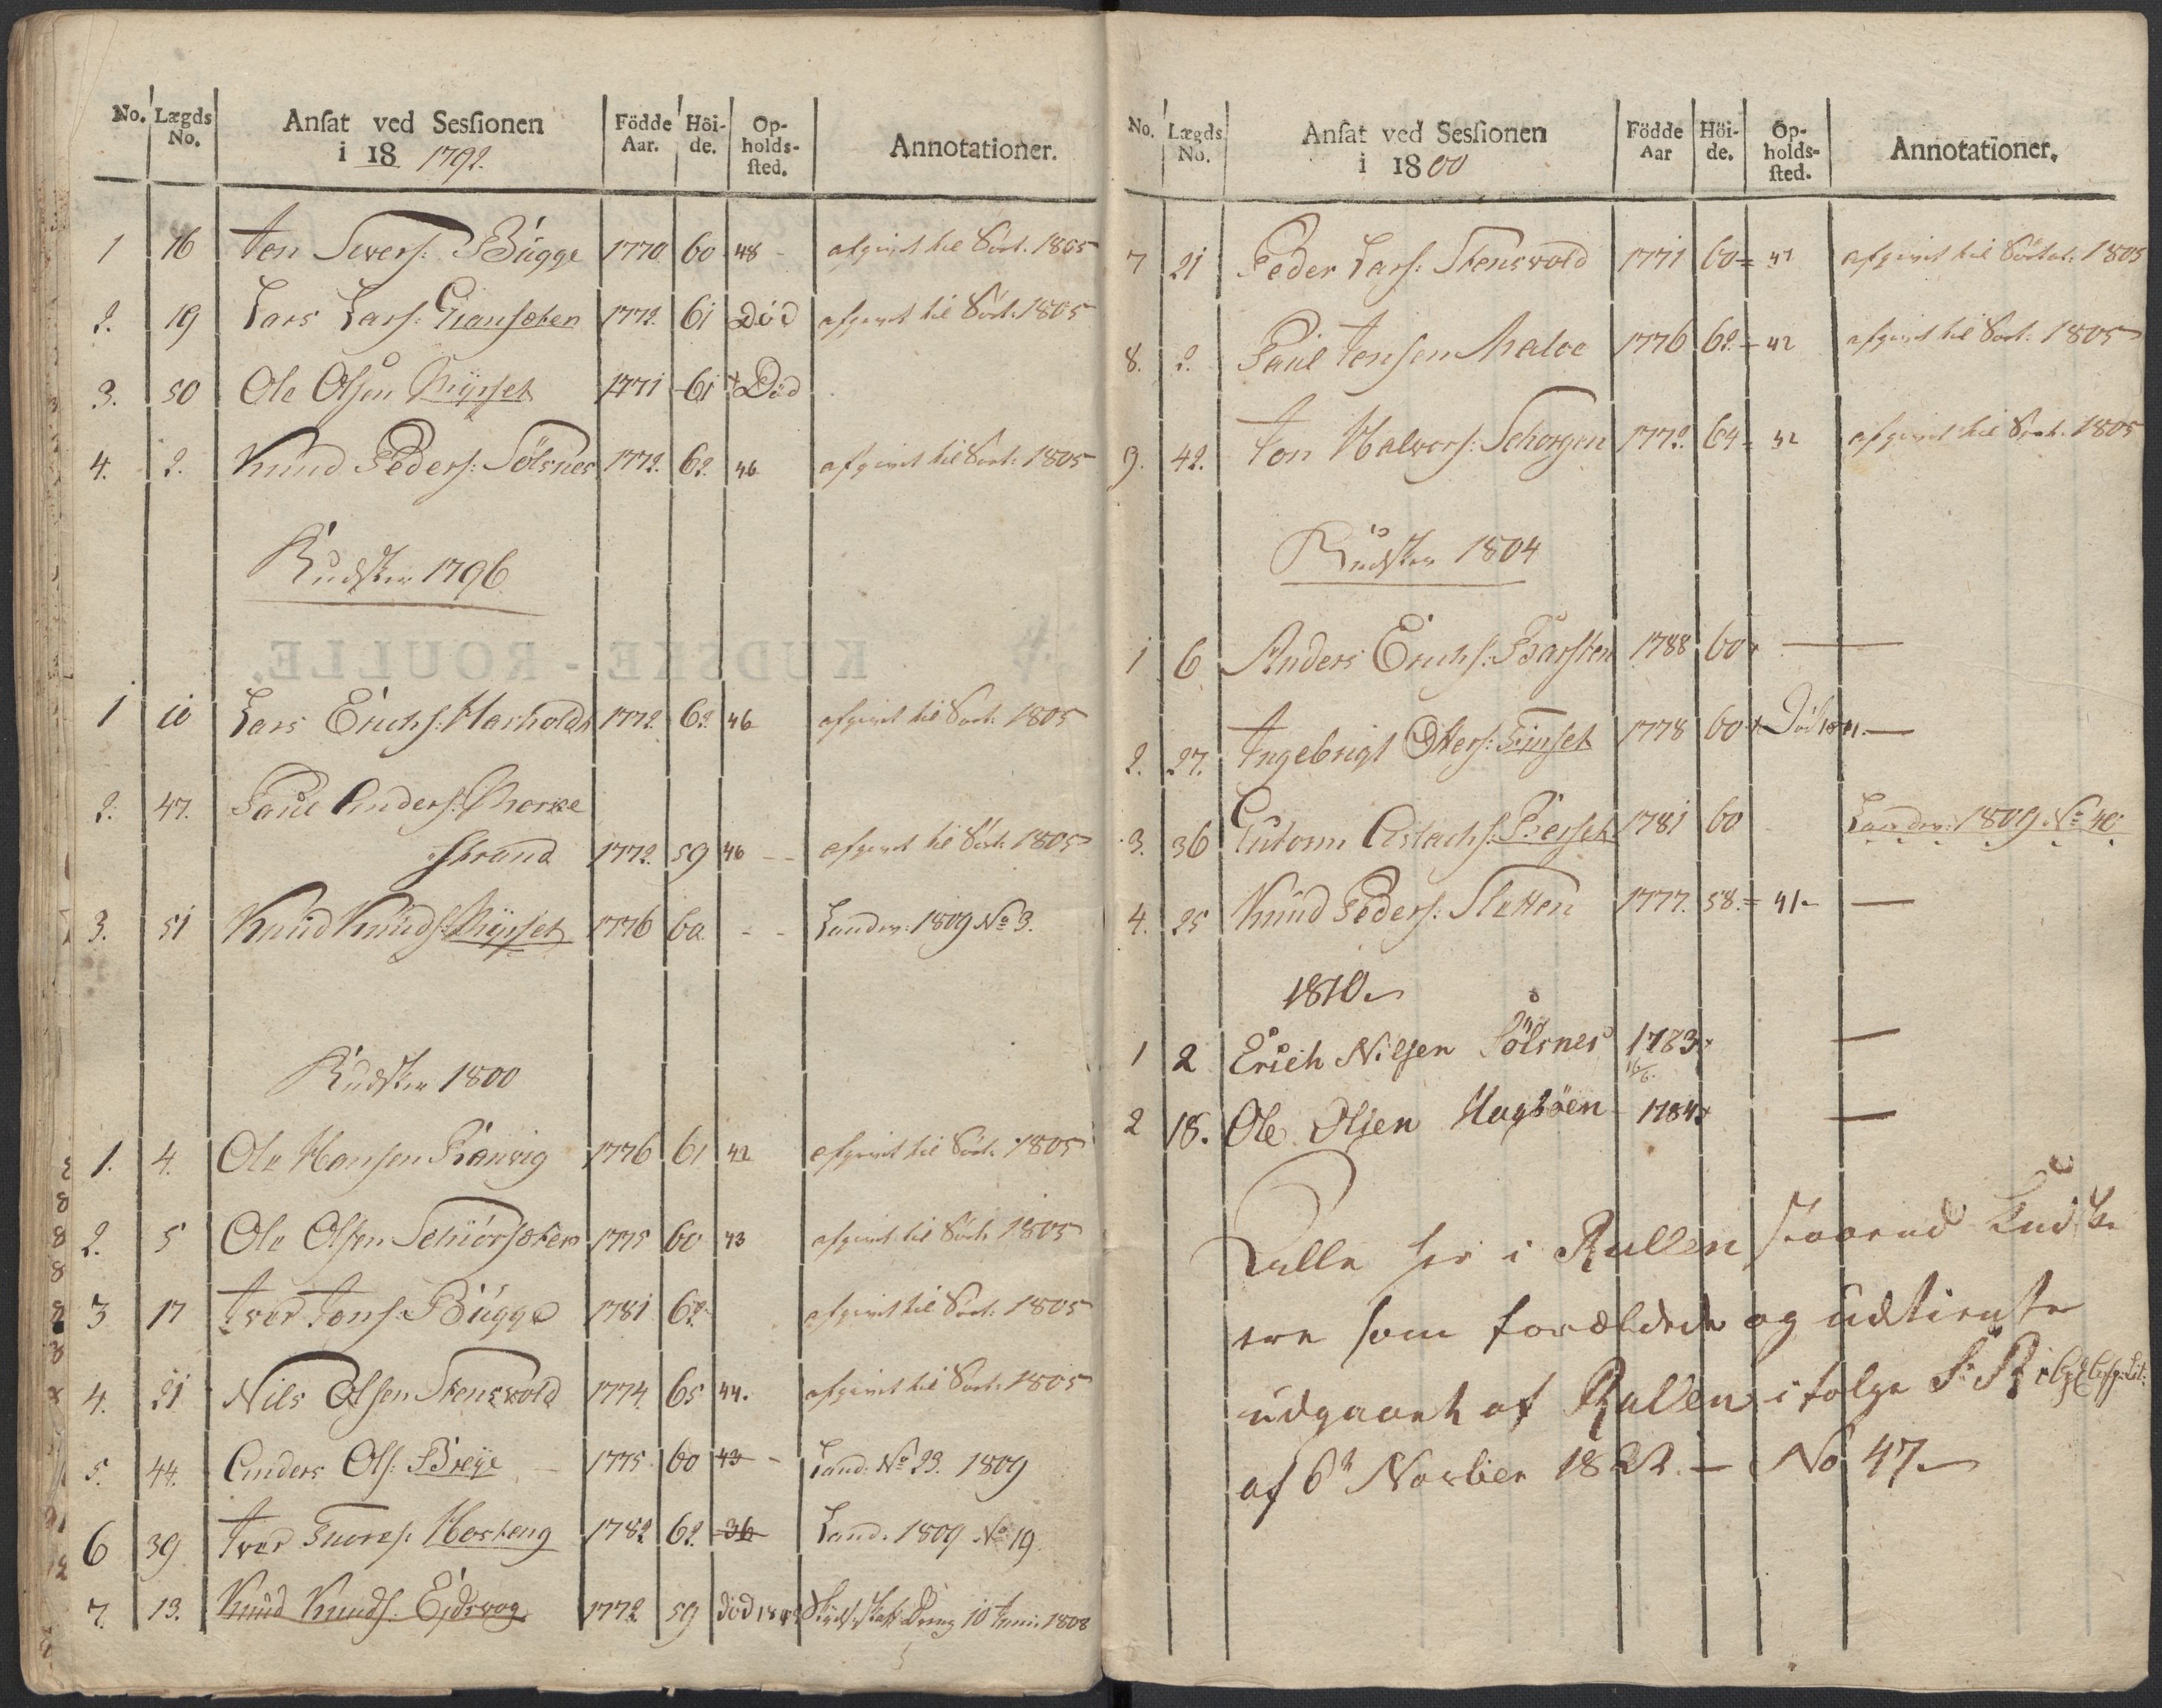 No. Lægds No. Ansat ved Sessionen i 18 1792. Födde Aar. Höi-de. Op-holds-sted. Annotationer.
1 16 Jon Sivers: Bugge 1770 60 48 - afgivet til Sört. 1805
2. 19 Lars Lars: Gransæten 1772. 61 Död afgivet til Sört. 1805
3. 50 Ole Olsen Myrset 1771 61 Död
4. 2. Knud Peders: Sölsnes 1772. 62. 46 afgivet til Sört. 1805
Kudsker 1796
KUDSKE-ROULLE.
1 10 Lars Erichs: Harholdt 1772. 62. 46 afgivet til Sört. 1805
2. 47. Paul Anders: Morke
strand 1772. 59 46 - - afgivet til Sört. 1805
3. 51 Knud Knuds: Myrset 1776 60. - - Landev: 1809 No 3.
Kudsker 1800
1. 4. Ole Hansen Ranvig 1776 61 42 afgivet til Sört. 1805
2. 5 Ole Olsen Schiörsæter 1775 60 43 afgivet til Sört. 1805
3 17 Iver Jons: Bugge 1781 62. afgivet til Sört. 1805
4. 21 Nils Olsen Stensvold 1774 65 44. afgivet til Sört. 1805
5. 44. Anders Ols: Breye - 1775 60 43 - Land: No 23. 1809
6 39 Iver Tores: Hosteng 1782 62. 36 Land. 1809 No 19.
7. 13. Knud Knuds: Ejdsvog 1772 59 död 10 Juni 1808
No. Lægds No. Ansat ved Sessionen i 1800 Födde Aar Höi-de. Op-holds-sted. Annotationer.
7 21 Peder Lars: Stensvold 1771 60 = 47 afgivet til Sört. 1805
8. 2. Paul Jensen Maloe 1776 62. = 42 afgivet til Sört. 1805
9. 42. Jon Halvors: Schorgen 1772. 64 = 42 afgivet til Sört. 1805
Kudsker 1804
1 6 Anders Erichs: Barsten 1788 60 —
2. 27. Ingebrigt Oters: Tijrset 1778 60 Död —
3. 36 Guttorm Aslachs: Berset 1781 60 Landev: 1809 No 40
4. 25 Knud Peders: Sletten 1777. 58. = 41 - —
1810.
1 2 Erich Nilsen Sölsnes 1783 16/6. —
2 18. Ole Olsen Hagböen 1784 —
alle her i Rullen staaende Kudske
ere som forældede og udtiente
udgaaet af Rullen i folge
af 6t Novber 1822. — No 47